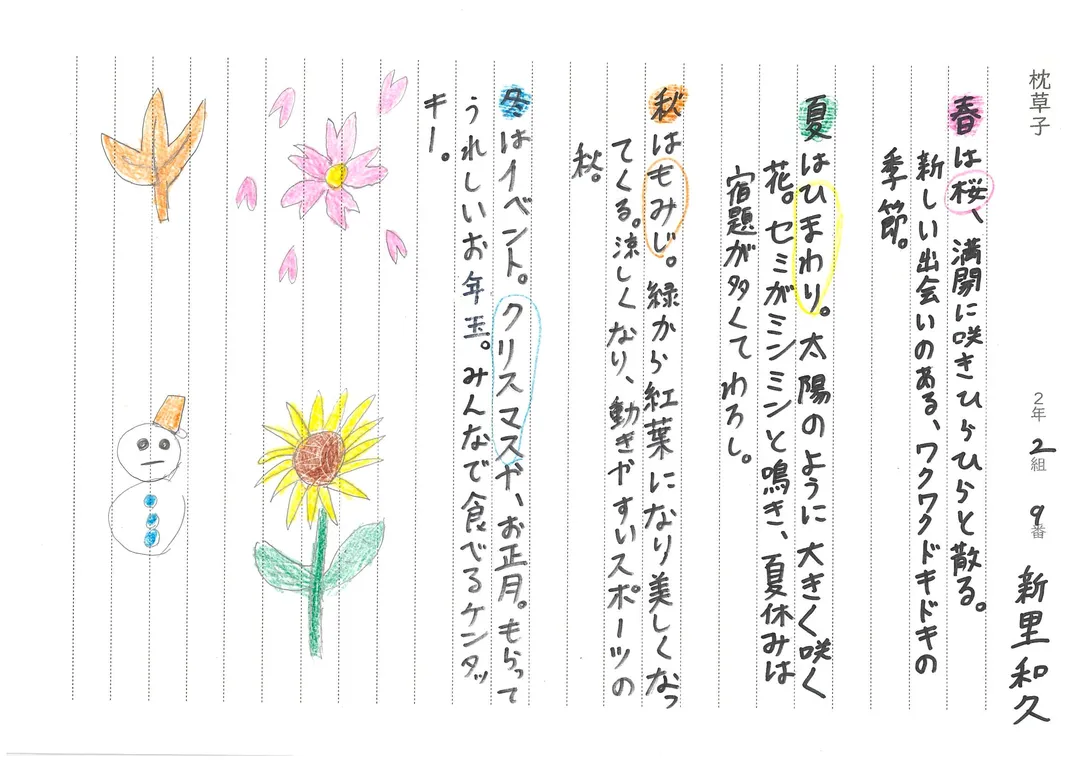 枕草子
2年 2組 9番 新里和久
春は桜、満開に咲きひらひらと散る。
新しい出会いのある、ワクワクドキドキの
季節。
夏はひまわり。太陽のように大きく咲く
花。セミがミンミンと鳴き、夏休みは
宿題が多くてわろし。
秋はもみじ。緑から紅葉になり美しくなっ
てくる。涼しくなり、動きやすいスポーツの
秋。
冬はイベント。クリスマスや、お正月。もらって
うれしいお年玉。みんなで食べるケンタッ
キー。